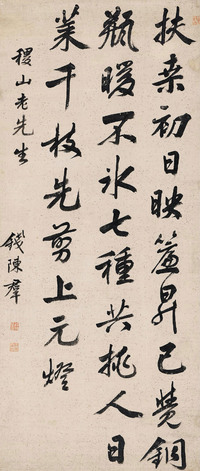 扶桒初日映簾昇已覺銅
瓶暖不冰七種共挑人日
菜千枝先剪上元燈
稷山老先生
錢陳羣